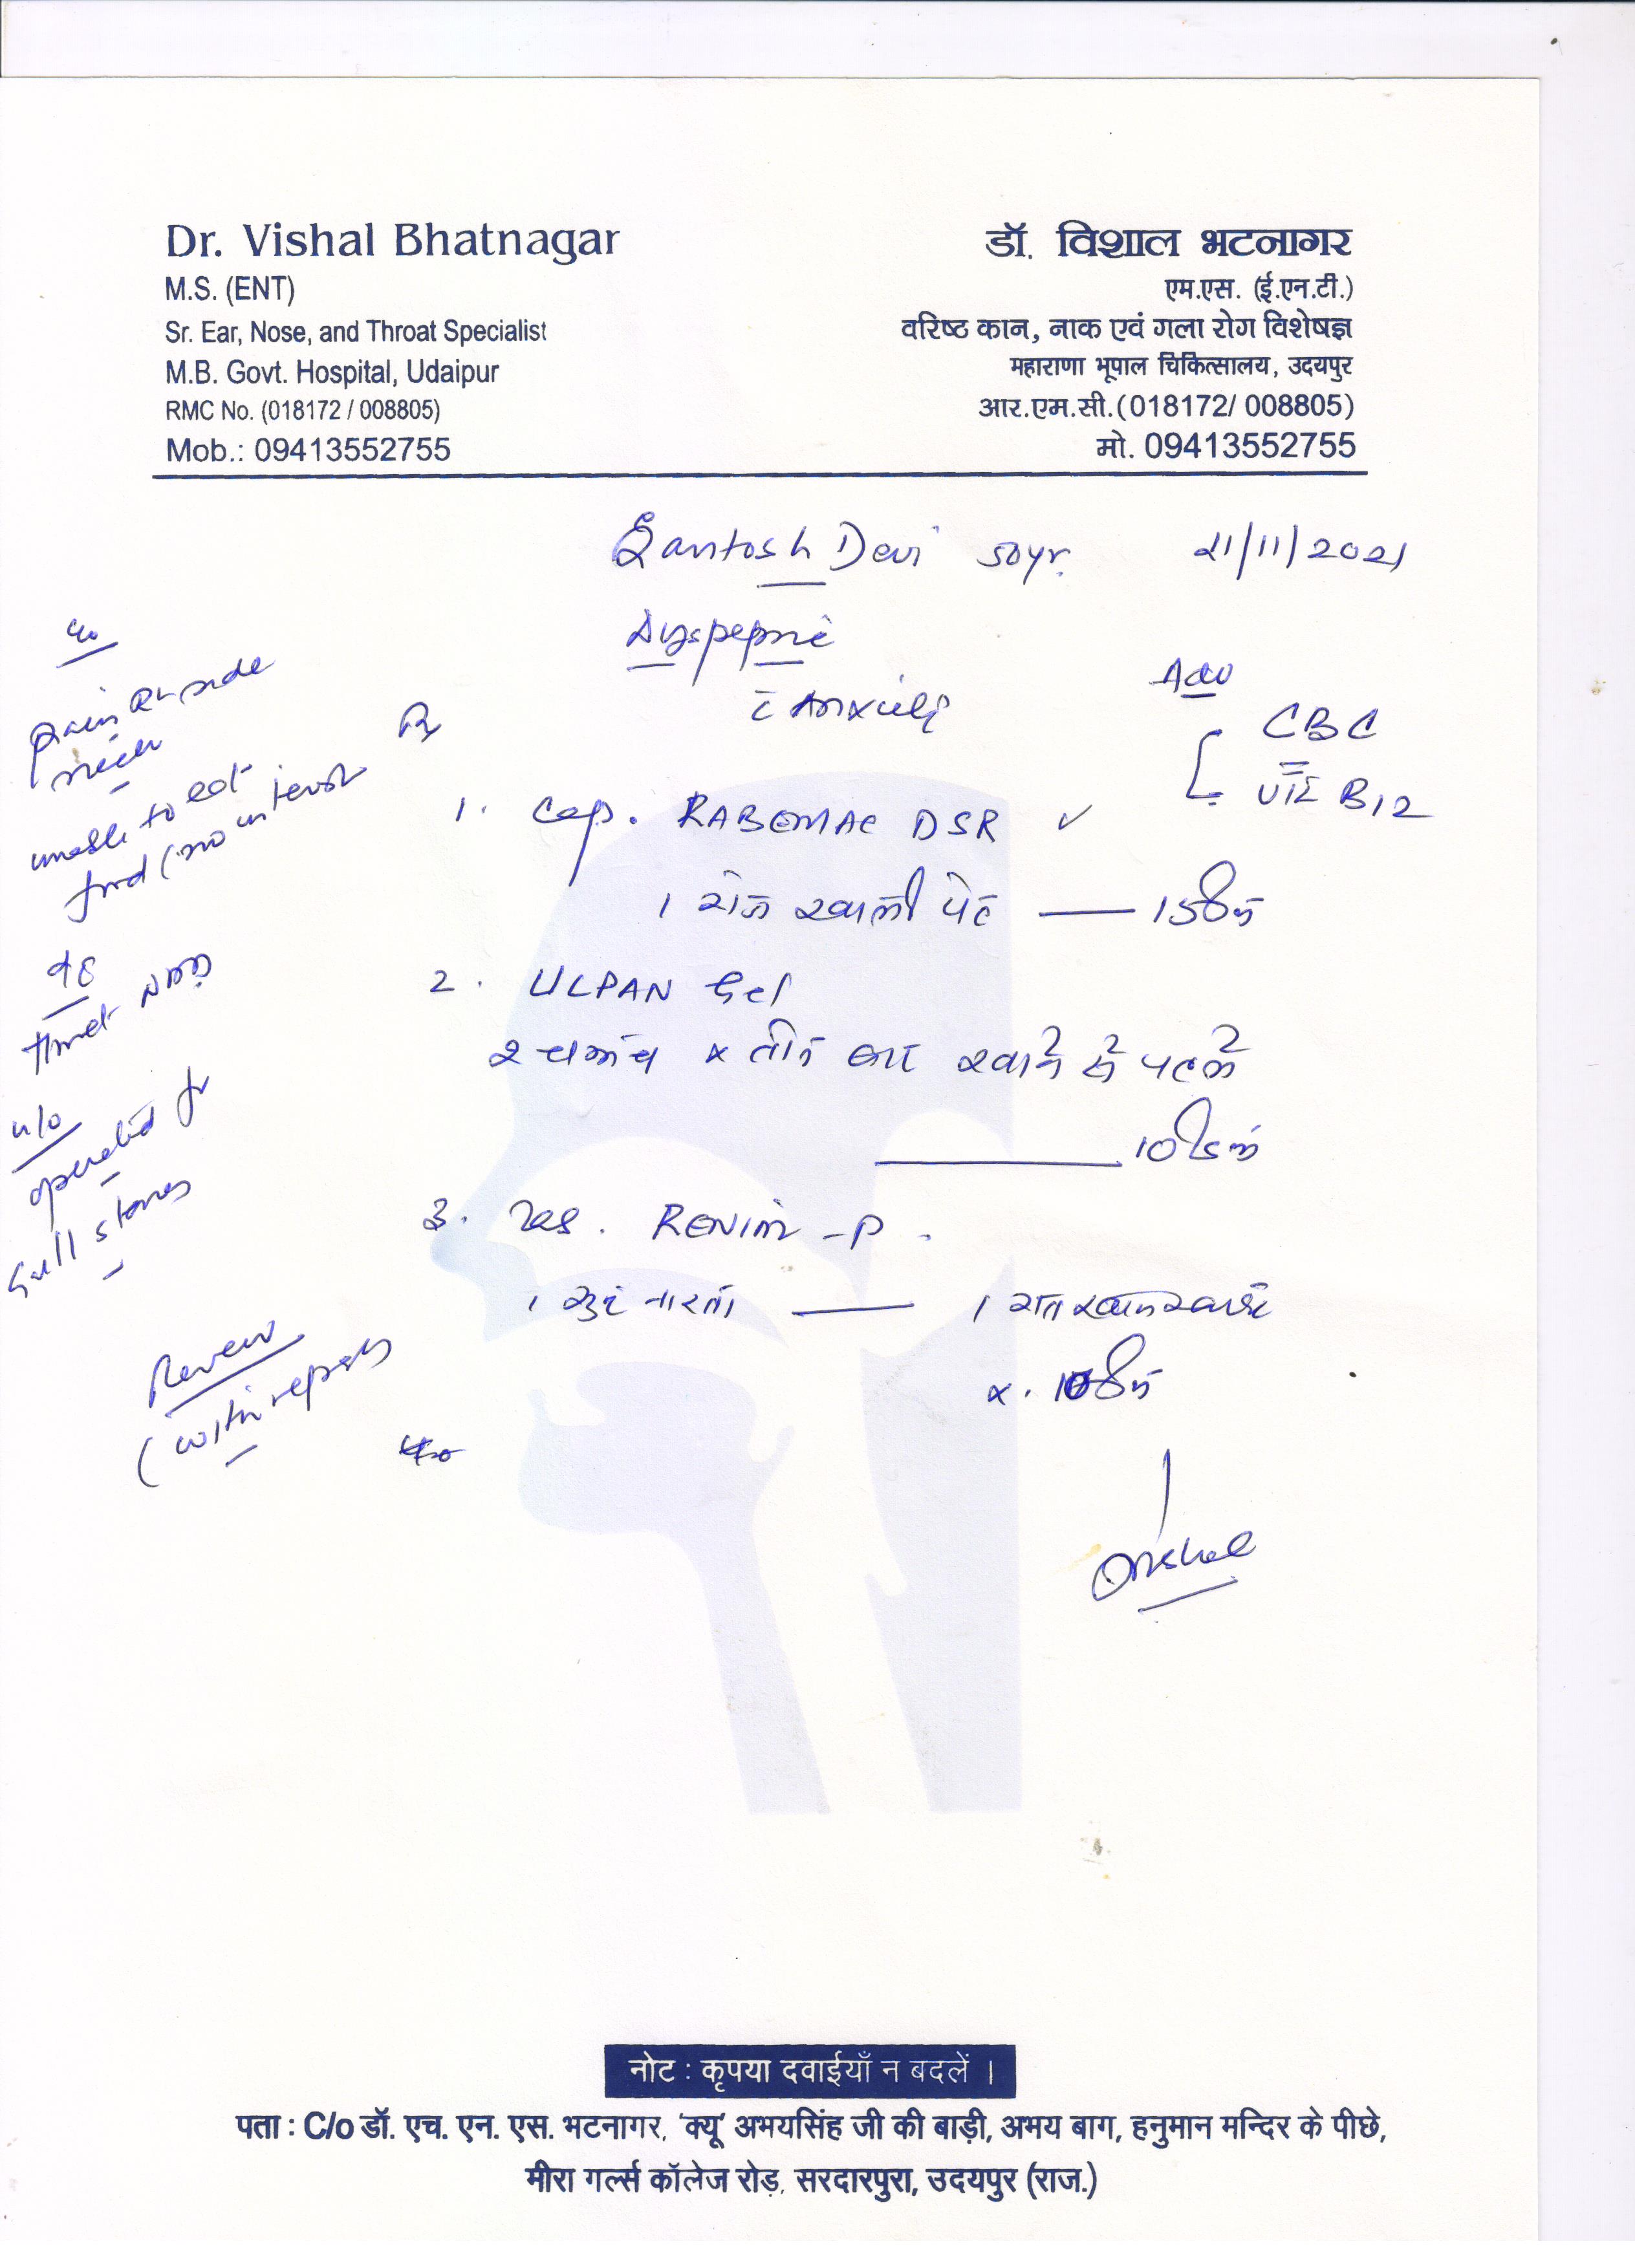 Dr. Vishal Bhatnagar
M.S. (ENT)
Sr. Ear, Nose, and Throat Specialist
M.B. Govt. Hospital, Udaipur
RMC No. (018172 / 008805)
Mob.: 09413552755
डॉ. विशाल भटनागर
एम.एस. (ई.एन.टी.)
वरिष्ठ कान, नाक एवं गला रोग विशेषज्ञ
महाराणा भूपाल चिकित्सालय, उदयपुर
आर.एम.सी.(018172/ 008805)
मो. 09413552755
Santosh Devi 50yr. 21/11/2021
Dyspepsia
c̄ Anxiety
Adv
CBC
Vit B12
c/o
pain Rt side
unable to eat
food (no interest
o/e
throat NAD
h/o
operated for
Gall stones
Review
(with reports
Rx
1. Cap. RABEMAC DSR ✓
1 रोज खाली पेट — 15 दिन
2. ULPAN Gel
2 चम्मच x तीन बार खाने से पहले
10 दिन
3. RENIM -P.
1 सुबह नाश्ता — 1 रात खाना
x. 10 दिन
Vishal
नोट : कृपया दवाईयाँ न बदलें ।
पता : C/o डॉ. एच. एन. एस. भटनागर, 'क्यू' अभयसिंह जी की बाड़ी, अभय बाग, हनुमान मन्दिर के पीछे,
मीरा गर्ल्स कॉलेज रोड़, सरदारपुरा, उदयपुर (राज.)